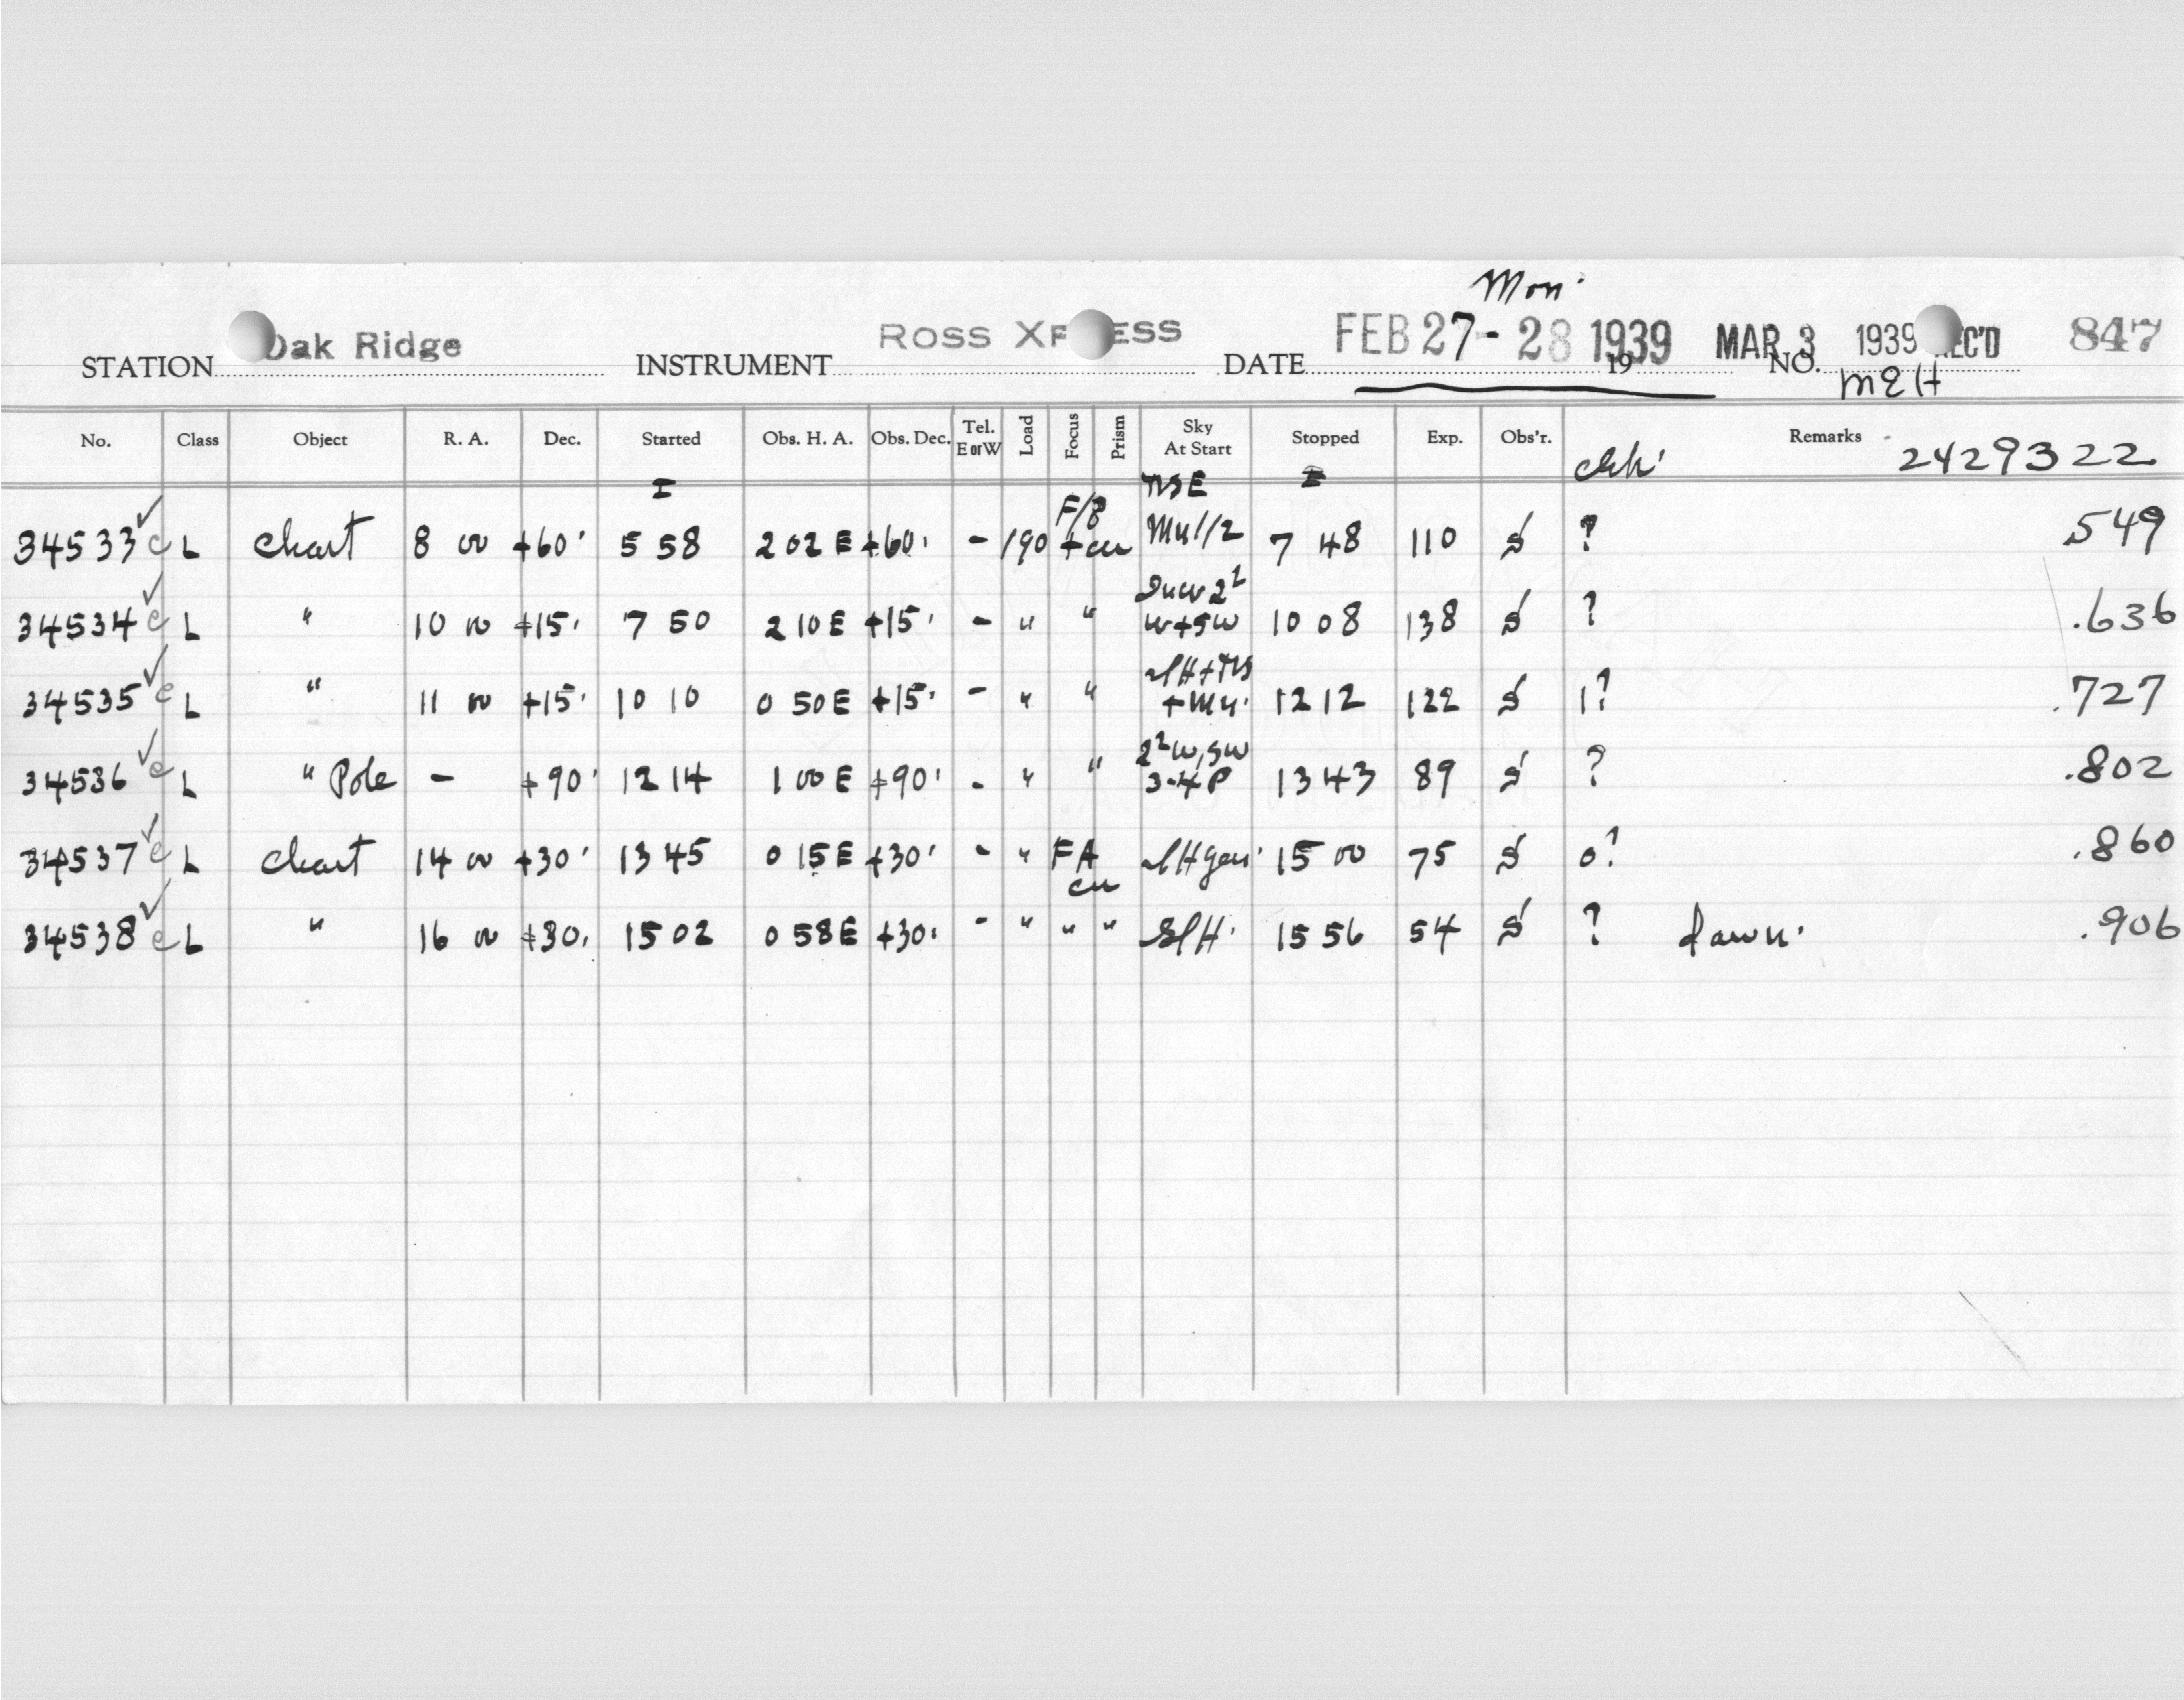 Mon.
STATION Oak Ridge INSTRUMENT ROSS XPRESS DATE FEB 27-28 1939 19 MAR 3 1939 REC'D NO. 847
MEH
No. Class Object R. A. Dec. Started Obs. H. A. Obs. Dec. Tel. E or W Load Focus Prism Sky At Start Stopped Exp. Obs'r. Remarks 2429322
34533 c L chart 8 00 +60° 5 58 2 02 E +60° - 190 F/8 7 48 110 S ? 549
34534 c L " 10 00 +15° 7 50 2 10 E +15° - " " W+SW 10 08 138 S ? .636
34535 c L " 11 00 +15° 10 10 0 50 E +15° - " " 12 12 122 S 1? .727
34536 c L " Pole - +90° 12 14 1 00 E +90° - " " 2² W, SW 3-4 P 13 43 89 S ? .802
34537 c L chart 14 00 +30° 13 45 0 15 E +30° - " FA 15 00 75 S 0? .860
34538 c L " 16 00 +30° 15 02 0 58 E +30° - " " " SlH. 15 56 54 S ? dawn. .906